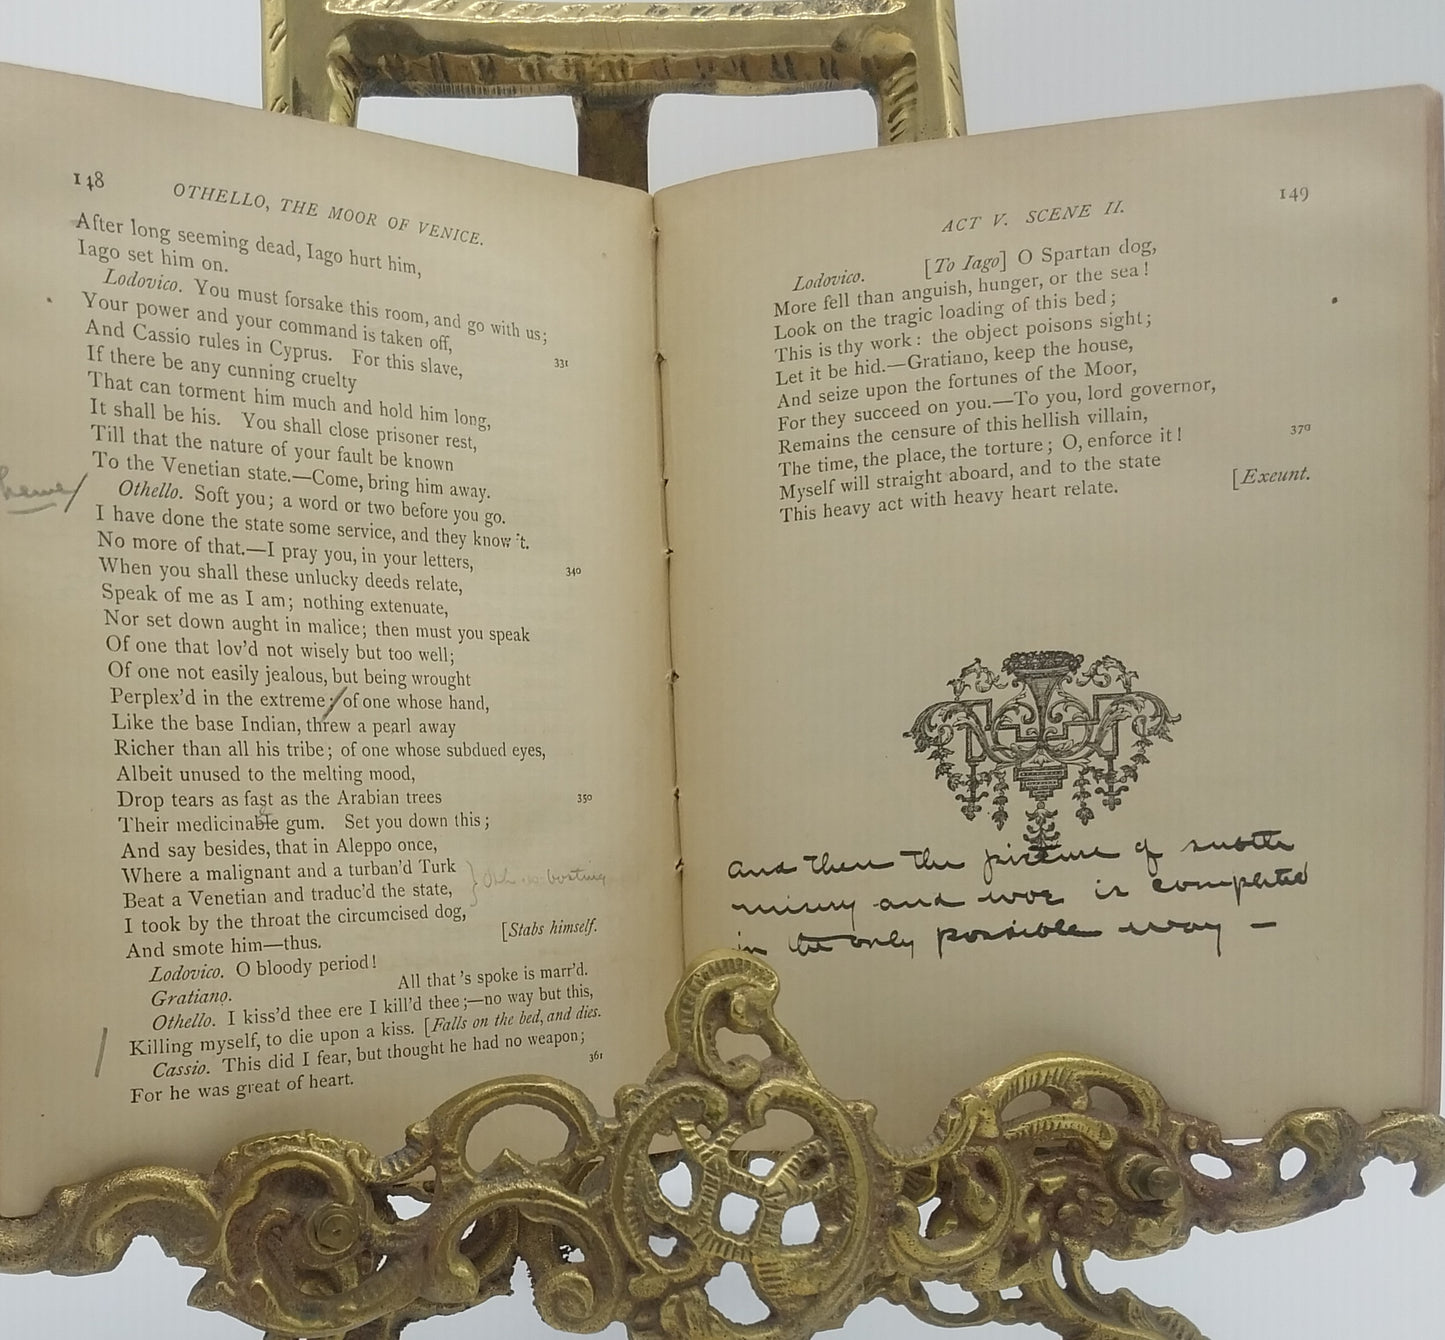 148
OTHELLO, THE MOOR OF VENICE.
After long seeming dead, Iago hurt him,
Iago set him on.
Lodovico. You must forsake this room, and go with us;
Your power and your command is taken off,
And Cassio rules in Cyprus. For this slave,
331
If there be any cunning cruelty
That can torment him much and hold him long,
It shall be his. You shall close prisoner rest,
Till that the nature of your fault be known
To the Venetian state.—Come, bring him away.
Othello. Soft you; a word or two before you go.
I have done the state some service, and they know 't.
No more of that.—I pray you, in your letters,
340
When you shall these unlucky deeds relate,
Speak of me as I am; nothing extenuate,
Nor set down aught in malice; then must you speak
Of one that lov'd not wisely but too well;
Of one not easily jealous, but being wrought
Perplex'd in the extreme; of one whose hand,
Like the base Indian, threw a pearl away
Richer than all his tribe; of one whose subdued eyes,
Albeit unused to the melting mood,
Drop tears as fast as the Arabian trees
350
Their medicinable gum. Set you down this;
And say besides, that in Aleppo once,
Where a malignant and a turban'd Turk
Beat a Venetian and traduc'd the state,
I took by the throat the circumcised dog,
And smote him—thus.
[Stabs himself.
Lodovico. O bloody period!
Gratiano. All that 's spoke is marr'd.
Othello. I kiss'd thee ere I kill'd thee;—no way but this,
Killing myself, to die upon a kiss. [Falls on the bed, and dies.
Cassio. This did I fear, but thought he had no weapon;
361
For he was great of heart.
ACT V. SCENE II.
149
Lodovico. [To Iago] O Spartan dog,
More fell than anguish, hunger, or the sea!
Look on the tragic loading of this bed;
This is thy work: the object poisons sight;
Let it be hid.—Gratiano, keep the house,
And seize upon the fortunes of the Moor,
For they succeed on you.—To you, lord governor,
Remains the censure of this hellish villain,
The time, the place, the torture; O, enforce it!
370
Myself will straight aboard, and to the state
This heavy act with heavy heart relate.
[Exeunt.
And then the picture of subtle
misery and woe is completed
in the only possible way —